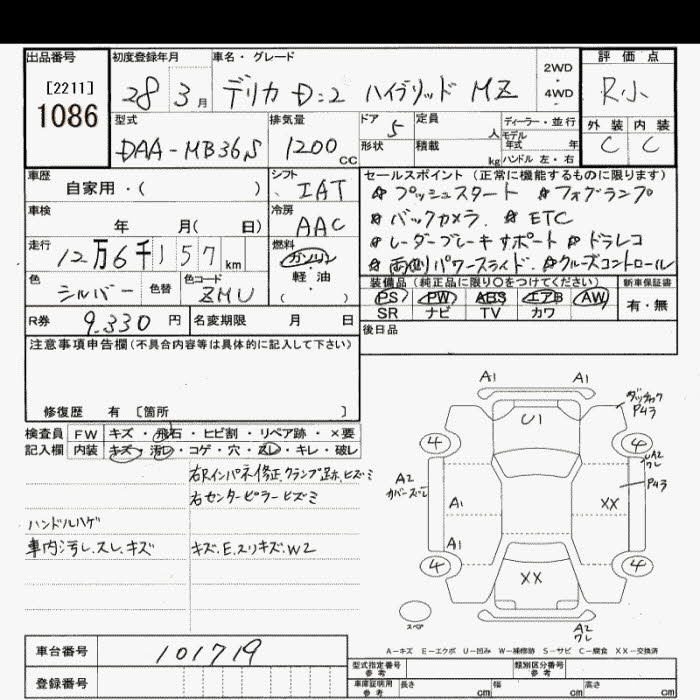 出品番号 初度登録年月 車名・グレード 評価点
[2211]
1086
28 3月 デリカ D:2 ハイブリッド MZ
2WD・4WD
R小
型式 排気量 ドア 定員 ディーラー・並行 外装 内装
DAA-MB36S 1200CC 5 人 モデル年式 年 C C
形状 積載 kg ハンドル 左・右
車歴 シフト セールスポイント(正常に機能するものに限ります)
自家用・( ) IAT ☆プッシュスタート ☆フォグランプ
車検 冷房 ☆バックカメラ. ☆ETC
年 月( 日) AAC ☆レーダーブレーキサポート ☆ドラレコ
走行 燃料 ☆両側パワースライド. ☆クルーズコントロール
12万6千157km ガソリン
軽・油
( )
色 色替 色コード 装備品(純正品に限り〇をつけてください) 新車保証書
シルバー ZMU PS PW ABS エアB AW 有・無
SR ナビ TV カワ
R券 9,330円 名変期限 月 日 後日品
注意事項申告欄(不具合内容等は具体的に記入して下さい)
修復歴 有 [箇所 ]
検査員 FW キズ・飛石・ヒビ割・リペア跡・×要
記入欄 内装 キズ・汚レ・コゲ・穴・スレ・キレ・破レ
右Rインパネ修正.クランプ跡.ヒズミ
右センターピラーヒズミ
ハンドルハゲ
車内汚レ.スレ.キズ キズ.E.スリキズ.W2
A1 A1
U1
P43
4 4
A2
ワレ
A2
カバーズレ
A1 XX P43
A1
4 4
XX
スペア
A2
ワレ
A-キズ E-エクボ U-凹み W-補修跡 S-サビ C-腐食 XX-交換済
車台番号 101719
登録番号
型式指定番号 参考 類別区分番号 参考
車庫証明用 参考 長さ cm 幅 cm 高さ cm